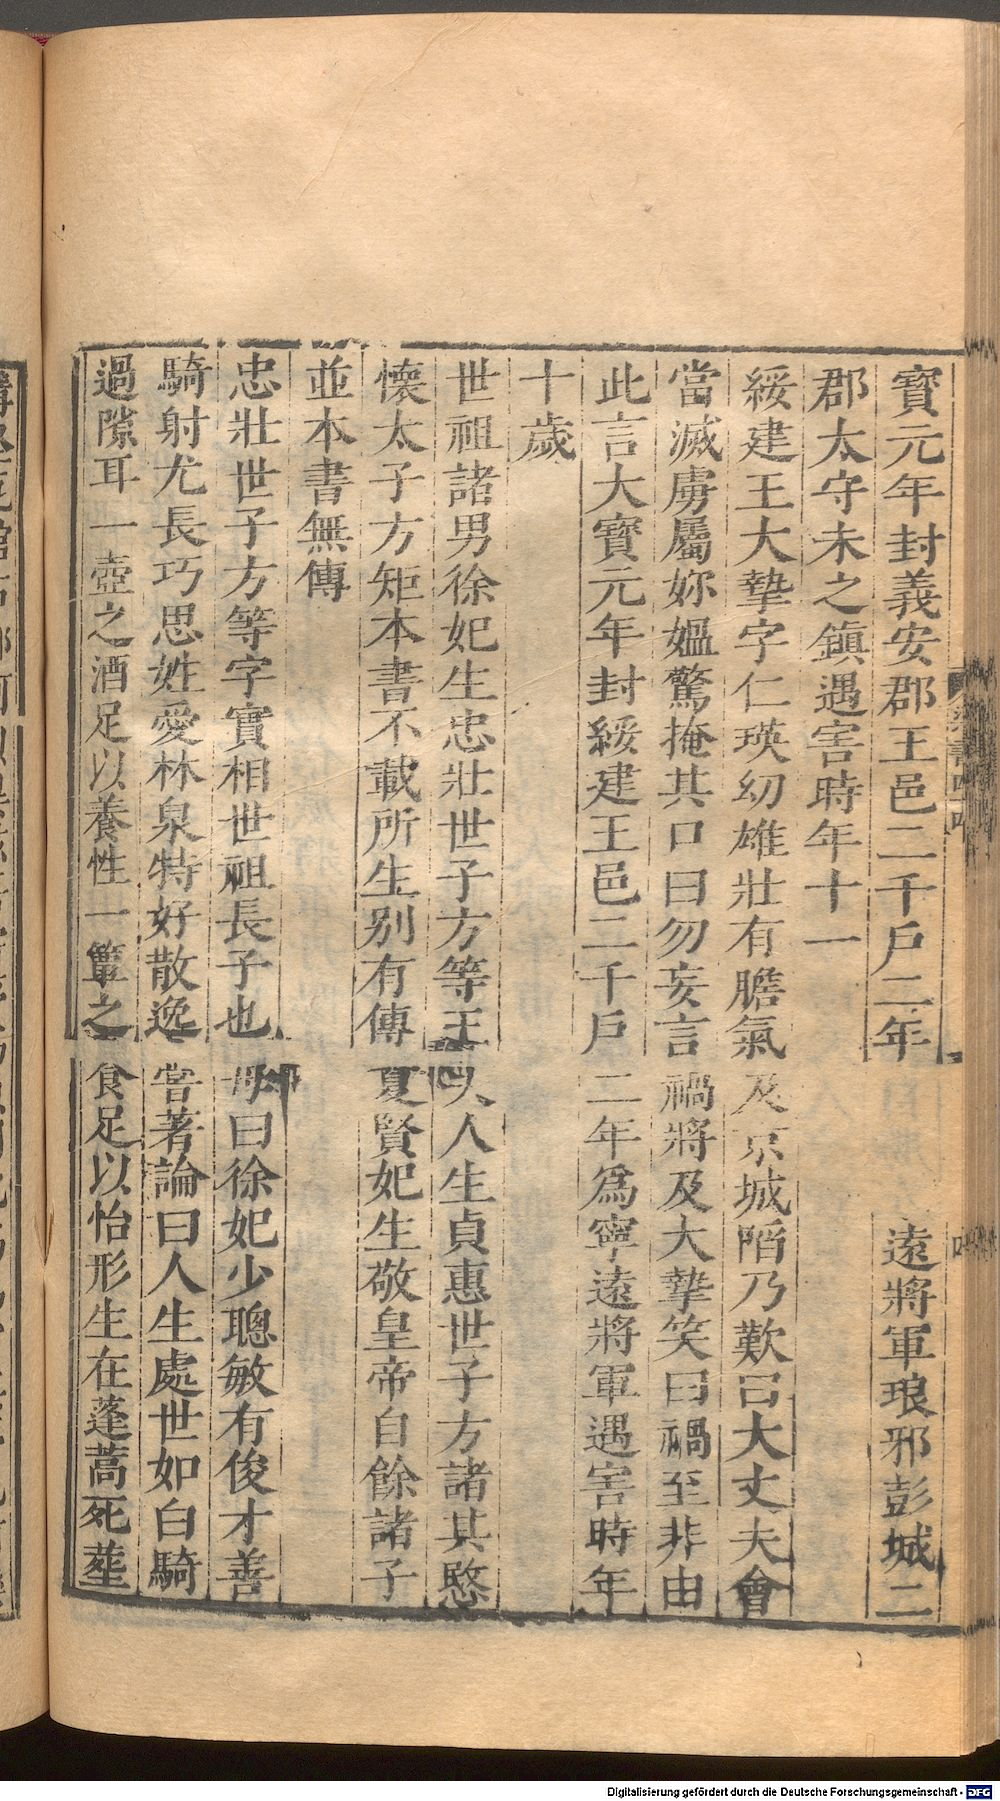 寶元年封義安郡王邑二千戶二年遠將軍琅邪彭城二
郡太守未之鎮遇害時年十一
綏建王大摯字仁瑛幼雄壯有膽氣及京城陷乃歎曰大丈夫會
當滅虜屬妳媼驚掩其口曰勿妄言禍將及大摯笑曰禍至非由
此言大寶元年封綏建王邑二千戶二年爲寧遠將軍遇害時年
十歲
世祖諸男徐妃生忠壯世子方等王夫人生貞惠世子方諸其愍
懷太子方矩本書不載所生別有傳夏賢妃生敬皇帝自餘諸子
並本書無傳
忠壯世子方等字實相世祖長子也母曰徐妃少聰敏有俊才善
騎射尤長巧思姓愛林泉特好散逸甞著論曰人生處世如白騎
過隙耳一壺之酒足以養性一簞之食足以怡形生在蓬蒿死葬
Digitalisierung gefördert durch die Deutsche Forschungsgemeinschaft - DFG